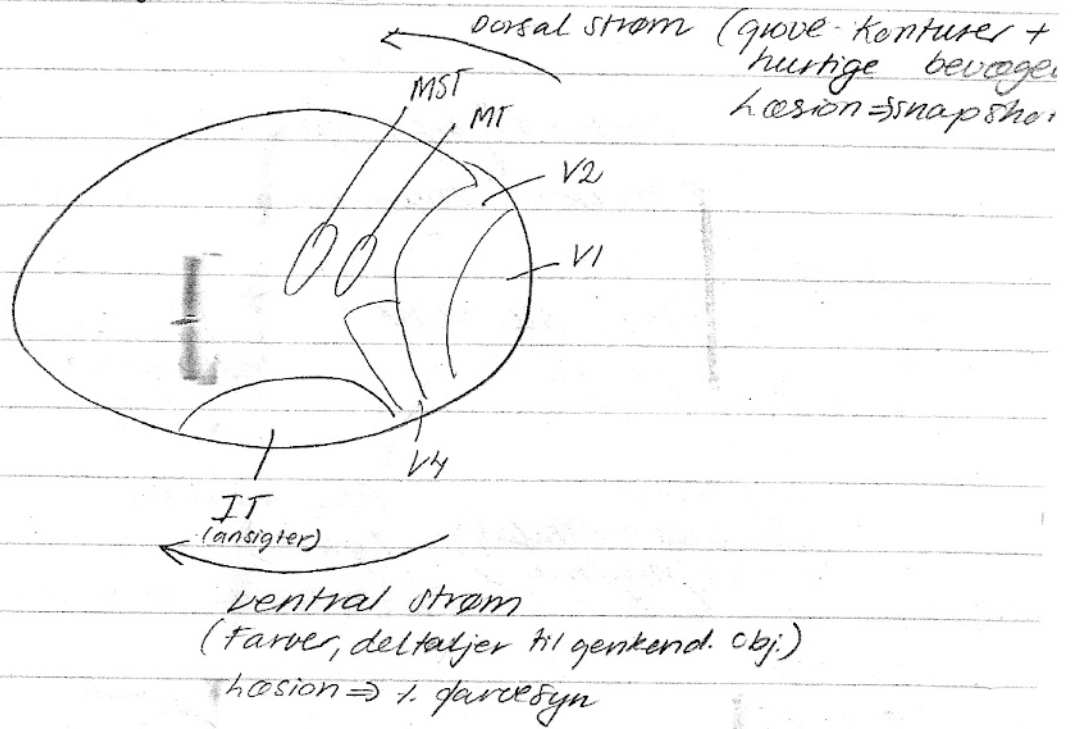 Dorsal strøm (grove konturer +
hurtige
Læsion ⇒
MST
MT
V2
V1
V4
IT
(ansigter)
ventral strøm
(Farver, deltaljer til genkend. obj.)
Læsion ⇒ ⁒ farvesyn